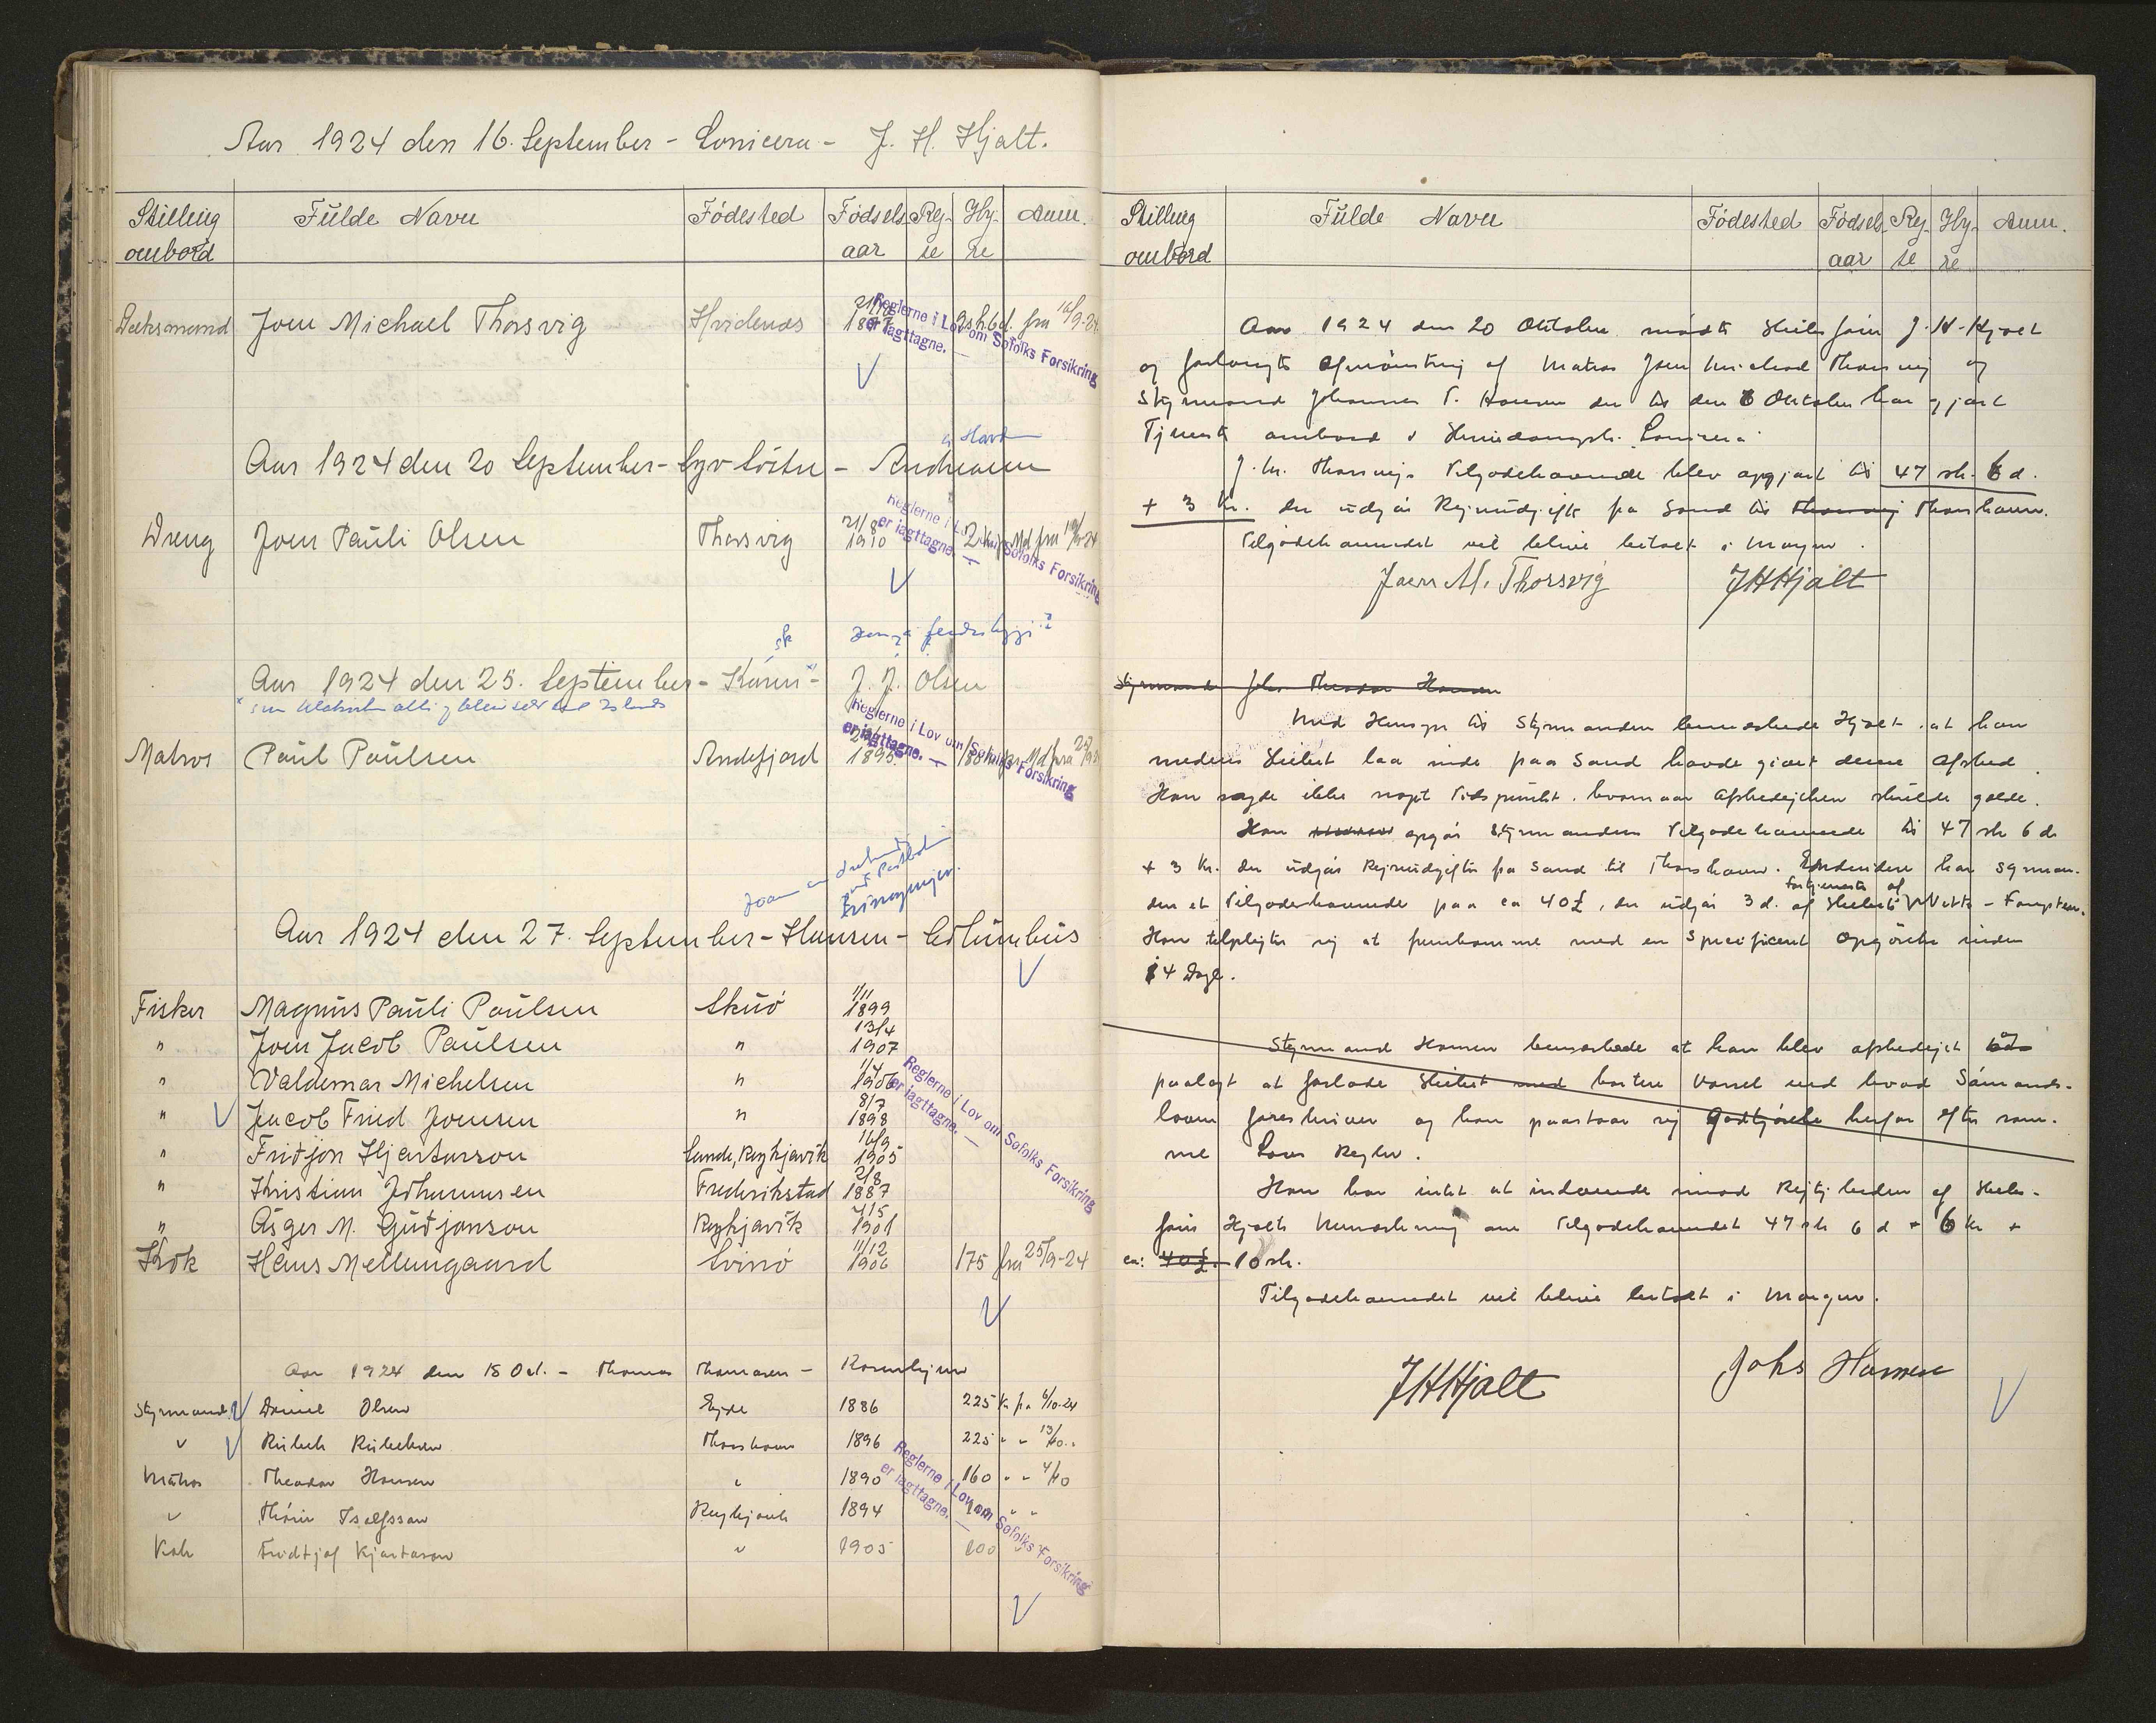 Aar 1924 den 16. September - Lonicera - J. H. Hjalt.
Stilling ombord Fulde Navn Fødested Fødselsaar Rejse Hyre Anm.
Dæksmand Joen Michael Thorsvig Hvidenæs fra 16/9-24
Reglerne i Lov om Søfolks Forsikring
er iagttagne. —
Aar 1924 den 20 September - Syv Söstre - Andreasen
Dreng Joen Pauli Olsen Thorsvig 21/8 1910 Md fra
Reglerne i Lov om Søfolks Forsikring
er iagttagne. —
Aar 1924 den 25. September - J. J. Olsen
Matros Paul Paulsen Andefjord 1895
Reglerne i Lov om Søfolks Forsikring
er iagttagne. —
Aar 1924 den 27. September - Hansen - Columbus
Fisker Magnus Pauli Paulsen Skuö 1/11 1899
" Joen Jacob Paulsen " 13/4 1907
" Valdemar Michelsen " 1906
" Jacob Fried Joensen " 8/7 1898
" Fridjon Hjartarson Sande, Reykjavik 16/9 1905
" Kristian Johannesen Frederikstad 2/8 1887
" Asger M. Gudjonson Reykjavik 1901
Kok Hans Mellemgaard Svinö 11/12 1906 175 fra 25/9-24
Reglerne i Lov om Søfolks Forsikring
er iagttagne. —
Aar 1924 den 18 Oct. - Thomas Thomasen - Rosenhjem
Styrmand Daniel Olsen Ejde 1886 225 Kr fra 6/10-24
" Thorshavn 1896 225 " " 13/10
Matros Theodor Hansen " 1890 160 " " 4/10
" Reykjavik 1894 " "
Kok Fridtjof Kjartanson " 1905 100
Reglerne i Lov om Søfolks Forsikring
er iagttagne. —
Stilling ombord Fulde Navn Fødested Fødselsaar Rejse Hyre Anm.
Aar 1924 den 20 Oktober mödte Skibsförer J. H. Hjalt
og forlangte Afmönstring af Matros Joen Michael Thorsvig og
Styrmand Johannes T. Hansen der til den 6 Oktober har gjort
Tjeneste ombord i Lonicera.
J. M. Thorsvigs Tilgodehavende blev opgjort til 47 sh. 6 d.
+ 3 Kr. der udgör Rejseudgift fra Sand til Thorsvig Thorshavn.
Tilgodehavendet vil blive betalt i Morgen.
Joen M. Thorsvig JHHjalt
Styrmand Johs. Theodor Hansen
Med Hensyn til Styrmanden bemærkede Hjalt at han
medens Skibet laa inde paa Sand havde givet denne Afsked.
Han sagde ikke noget Tidspunkt hvornaar Afskedigelsen skulde gælde.
Han opgör Styrmandens Tilgodehavende til 47 sh 6 d
+ 3 Kr. der udgör Rejseudgifter fra Sand til Thorshavn. Endvidere har Styrman-
den et Tilgodehavende paa ca 40£, der udgör 3 d. af Skibets fortjeneste af Netto-Fangsten.
Han tilpligter sig at fremkomme med en specificeret Opgörelse inden
14 Dage.
Styrmand Hansen bemærkede at han blev afskediget
paalagt at forlade Skibet med kortere Varsel end hvad Sömands-
loven foreskriver og han paastaar sig Godtgörelse herfor efter sam-
me Lovs Regler.
Han har intet at indvende imod Rigtigheden af Skibs-
förer Hjalts Bemærkning om Tilgodehavendet 47 sh 6 d + 6 Kr +
ca: 40£. 10 sh.
Tilgodehavendet vil blive betalt i Morgen.
JHHjalt Johs Hansen